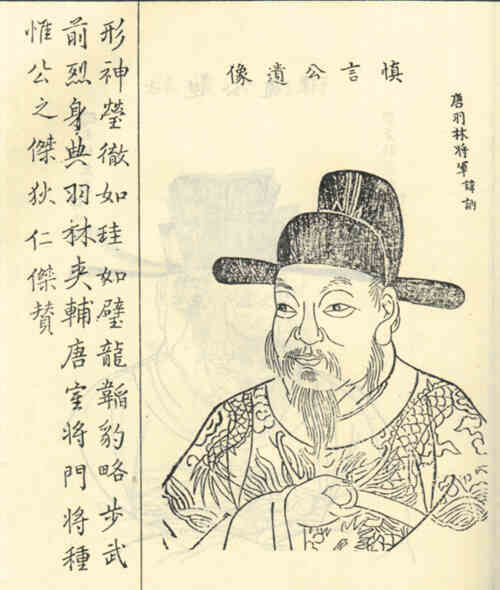 唐羽林将軍諱訥
慎言公遺像
形神瑩徹如珪如璧龍韜豹略步武
前烈身典羽林夾輔唐室将門将種
惟公之傑狄仁傑賛